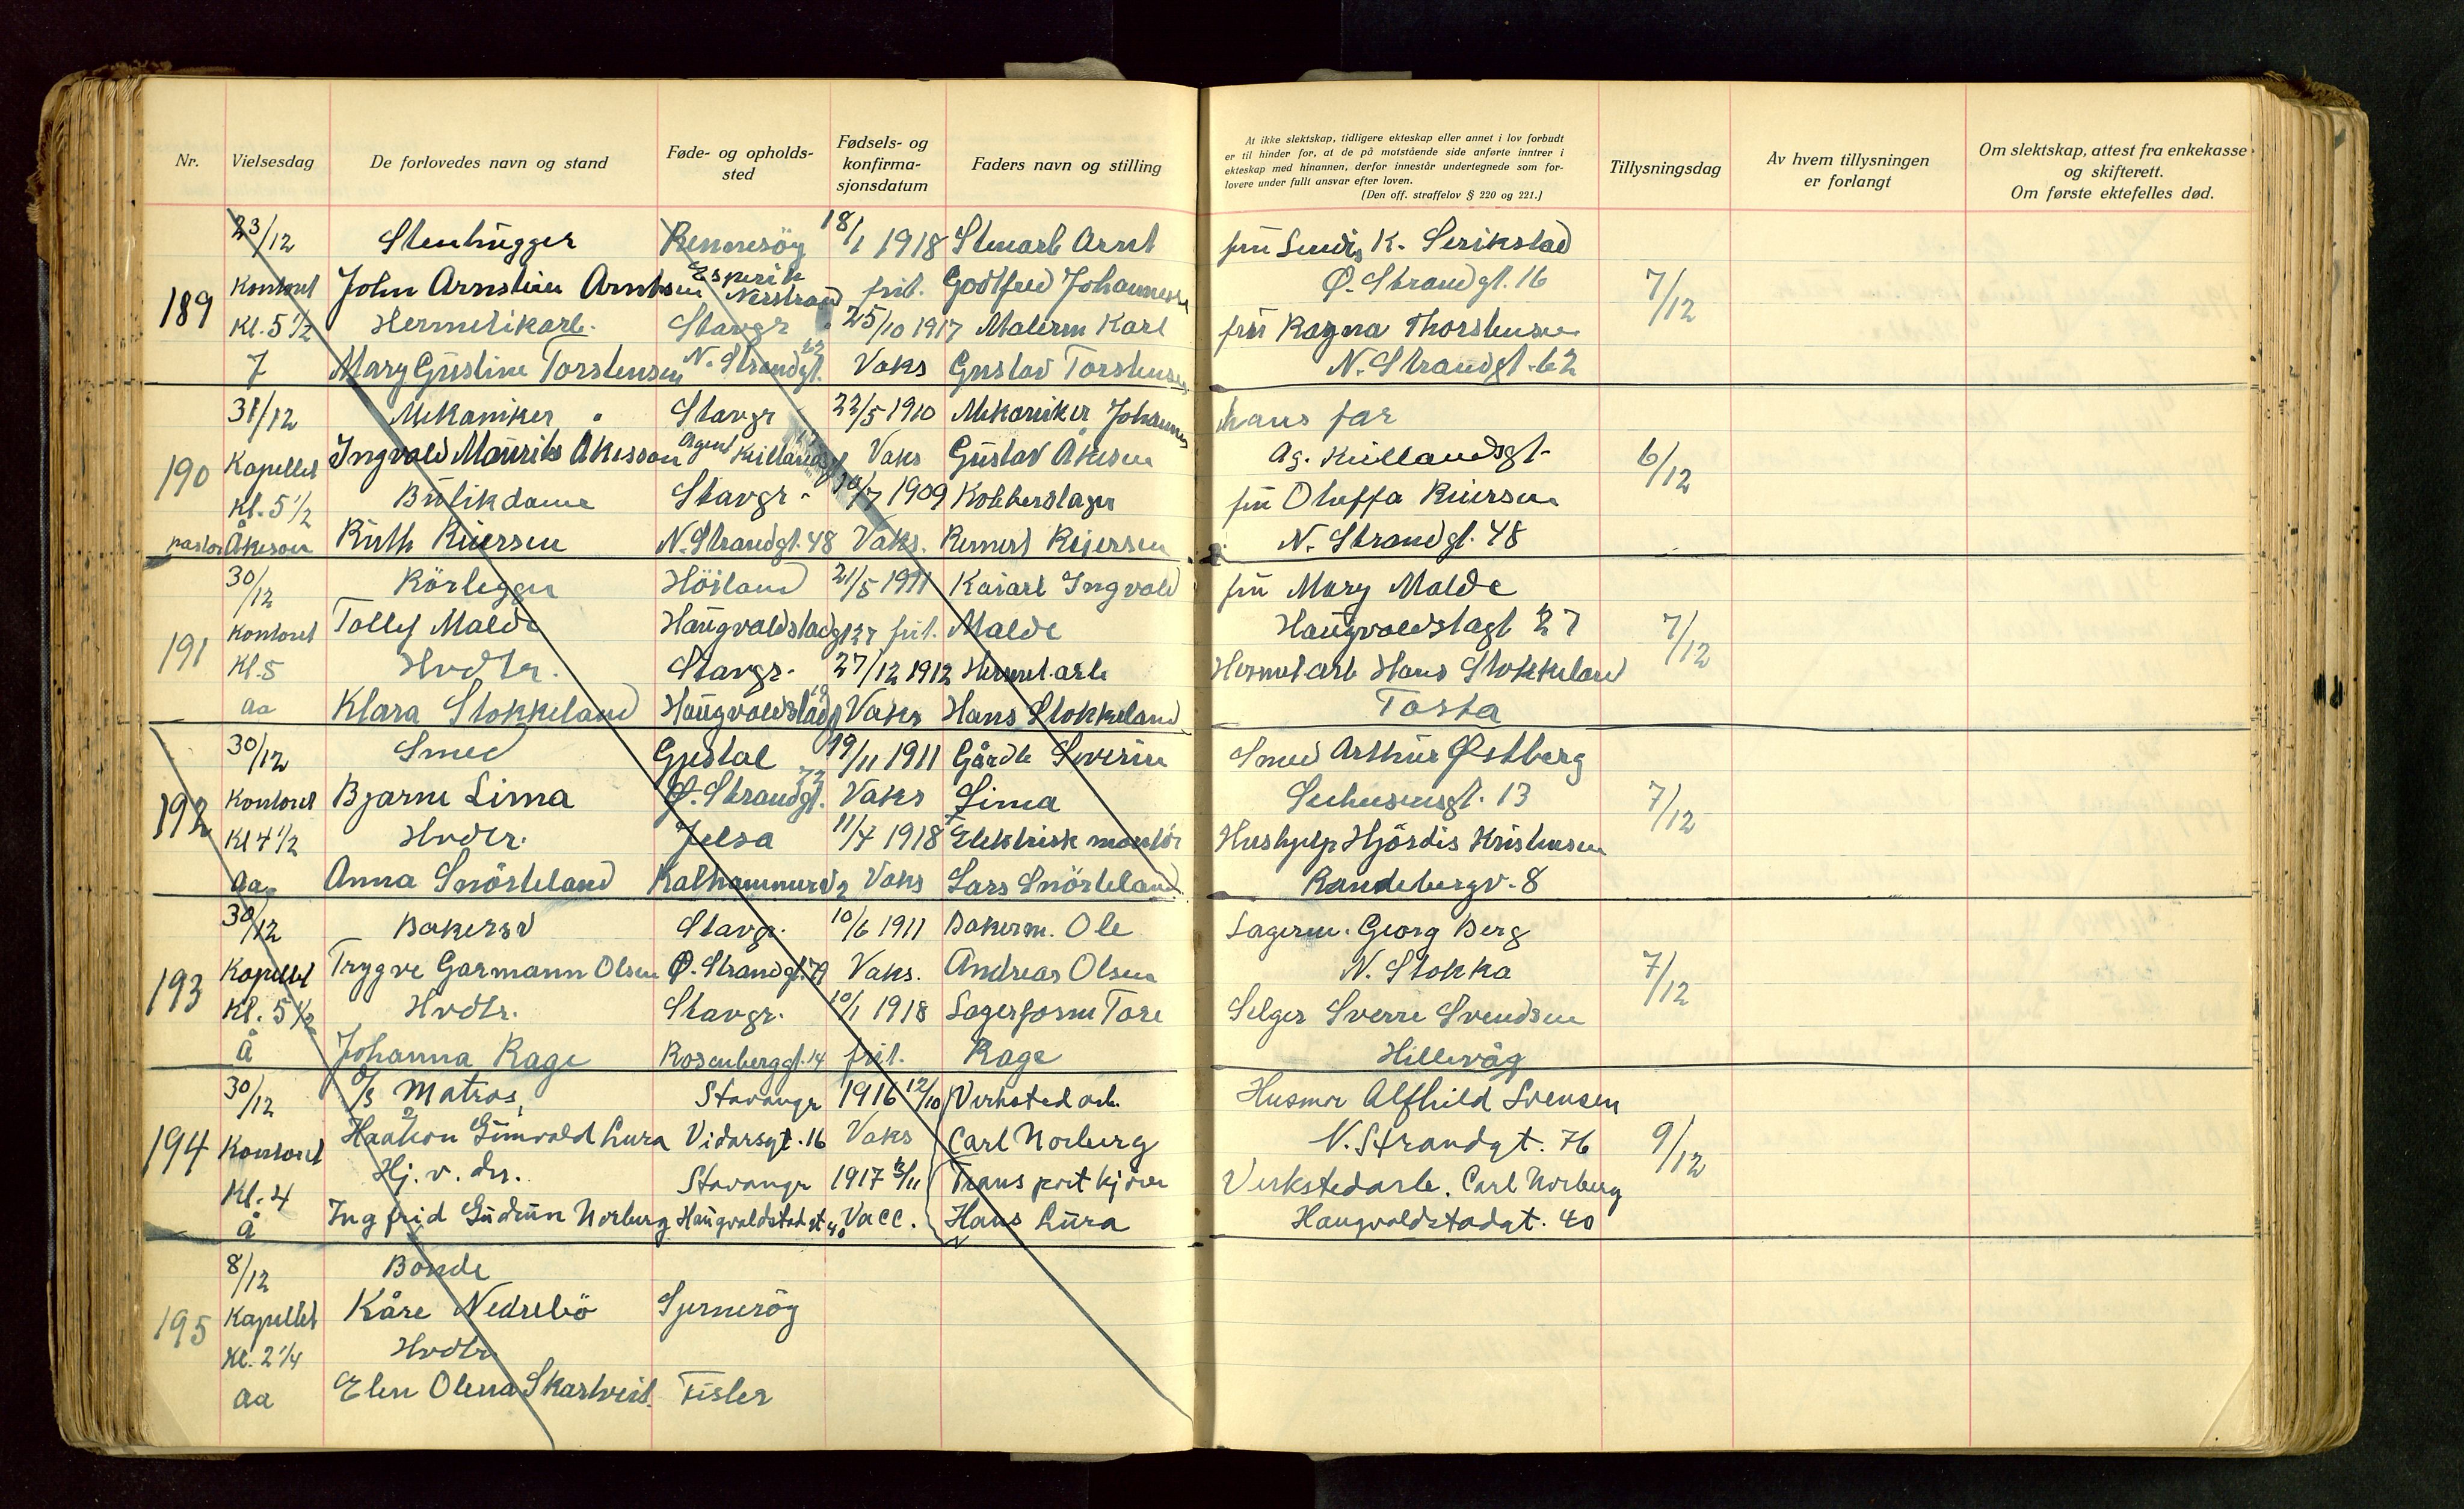 Nr.
Vielsesdag
De forlovedes navn og stand
Føde- og opholds-
sted
Fødsels- og
konfirma-
sjonsdatum
Faders navn og stilling
At ikke slektskap, tidligere ekteskap eller annet i lov forbudt
er til hinder for, at de på motstående side anførte inntrer i
ekteskap med hinannen, derfor innestår undertegnede som for-
lovere under fullt ansvar efter loven.
[Den off. straffelov § 220 og 221.]
Tillysningsdag
Av hvem tillysningen
er forlangt
Om slektskap, attest fra enkekasse
og skifterett.
Om første ektefelles død.
189
23/12 Stenhugger Rennesöy 18/1 1918 Stenarb Arnt fru K. Serikstad
Kontoret John Arnstein Arntsen Nerstrand frit. Godtfred Johannesen Ø. Strandgt. 16 7/12
Kl. 5 1/2 Hermetikarb. Stavgr 25/10 1917 Malerm Karl fru Ragna Thorstensen
7 Mary Gustine Torstensen N. Strandgt. 62 Vaks Gustav Torstensen N. Strandgt. 62
190
31/12 Mekaniker Stavgr 22/5 1910 Mekaniker Johannes hans far
Kapellet Ingvald Maurits Åkesson Kiellandsgt Vaks Gustav Åkeson Ag. Kiellandsgt. 6/12
Kl. 5 1/2 Butikdame Stavgr. 30/7 1909 Kobberslager fru Oluffa Reiersen
pastor Åkeson Ruth Reiersen N. Strandgt. 48 Vaks. Reinert Reiersen N. Strandgt. 48
191
30/12 Rörlegger Höiland 21/5 1911 Kaiarb Ingvald fru Mary Malde
Kontoret Tollef Malde Haugvaldstadgt 27 frit. Malde Haugvaldstagt 27 7/12
Kl. 5 Hvdtr. Stavgr. 27/12 1912 Hermet.arb Hermetarb Hans Stokkeland
aa Klara Stokkeland Haugvaldstadgt Vaks Hans Stokkeland Tasta
192
30/12 Smed Gjestal 19/11 1911 Gårdb Severin Smed Arthur Østberg
Kontoret Bjarne Lima Ø. Strandgt. 72 Vaks Lima Seehusensgt. 13 7/12
Kl 4 1/2 Hvdtr. Jelsa 11/7 1918 Elektrisk montör Hushjelp Hjördis Kristensen
aa Anna Snörteland Kalhammerv 2 Vaks Lars Snörteland Randebergv. 8
193
30/12 Bakersv Stavgr. 10/6 1911 Bakerm. Ole Lagerm. Georg Berg
Kapellet Trygve Garmann Olsen Ø. Strandgt. 79 Vaks. Andreas Olsen N. Stokka 7/12
Kl. 5 1/2 Hvdtr. Stavgr. 10/1 1918 Lagerform Tore Selger Sverre Svendsen
Å Johanna Rage Rosenberggt. 14 frit. Rage Hillevåg
194
30/12 Matros Stavanger 1916 12/10 Verksted arb. Husmor Alfhild Svensen
Kontoret Haakon Gunvald Lura Vidarsgt. 16 Vaks Carl Norberg N. Strandgt. 76 9/12
Kl. 4 Hj. v. dr. Stavanger 1917 Transportkjörer Verkstedarb. Carl Norberg
Å Ingfrid Gudrun Norberg Haugvaldstadgt 40 Vacc. Hans Lura Haugvaldstadgt. 40
195
8/12 Bonde
Kapellet Kåre Nedrebö Sjerneröy
Kl. 2 1/4 Hvdtr
aa Elen Olena Skartveit. Fister